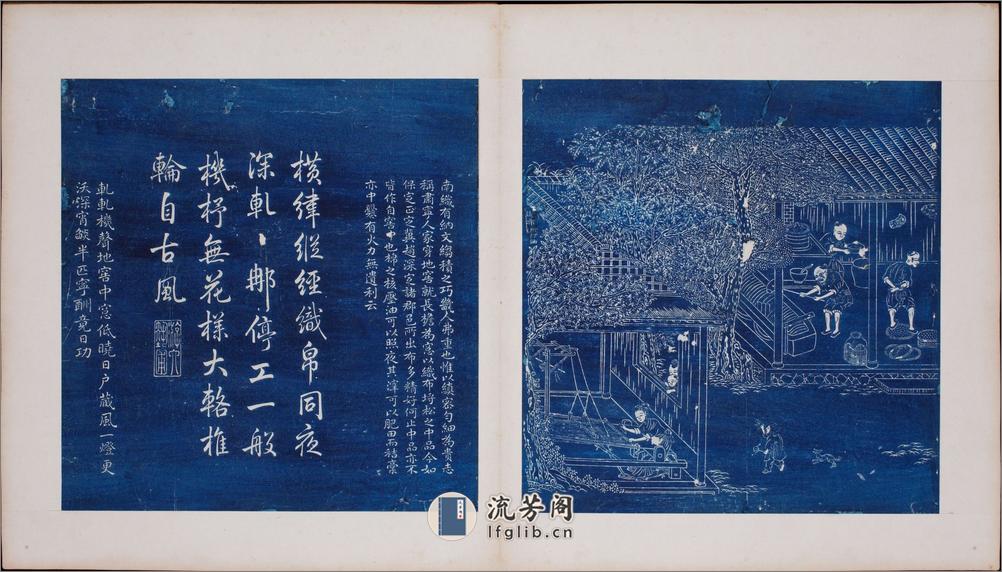 南織有納文縐積之巧畿人弗重也惟以縝密勻細為貴志
稱肅寧人家穿地窖就長檐為窗以織布埒松之中品今如
保定正定冀趙深定諸郡邑所出布多精好何止中品亦不
皆作自窖中也棉之核壓油可以照夜其滓可以肥田而秸槀
亦中爨有火力無遺利云
橫緯縱經織帛同夜
深軋〻那停工一般
機杼無花樣大輅椎
輪自古風
軋軋機聲地窖中窗低曉日戶藏風一燈更
沃深宵燄半匹寧酬竟日功
流芳阁
lfglib.cn